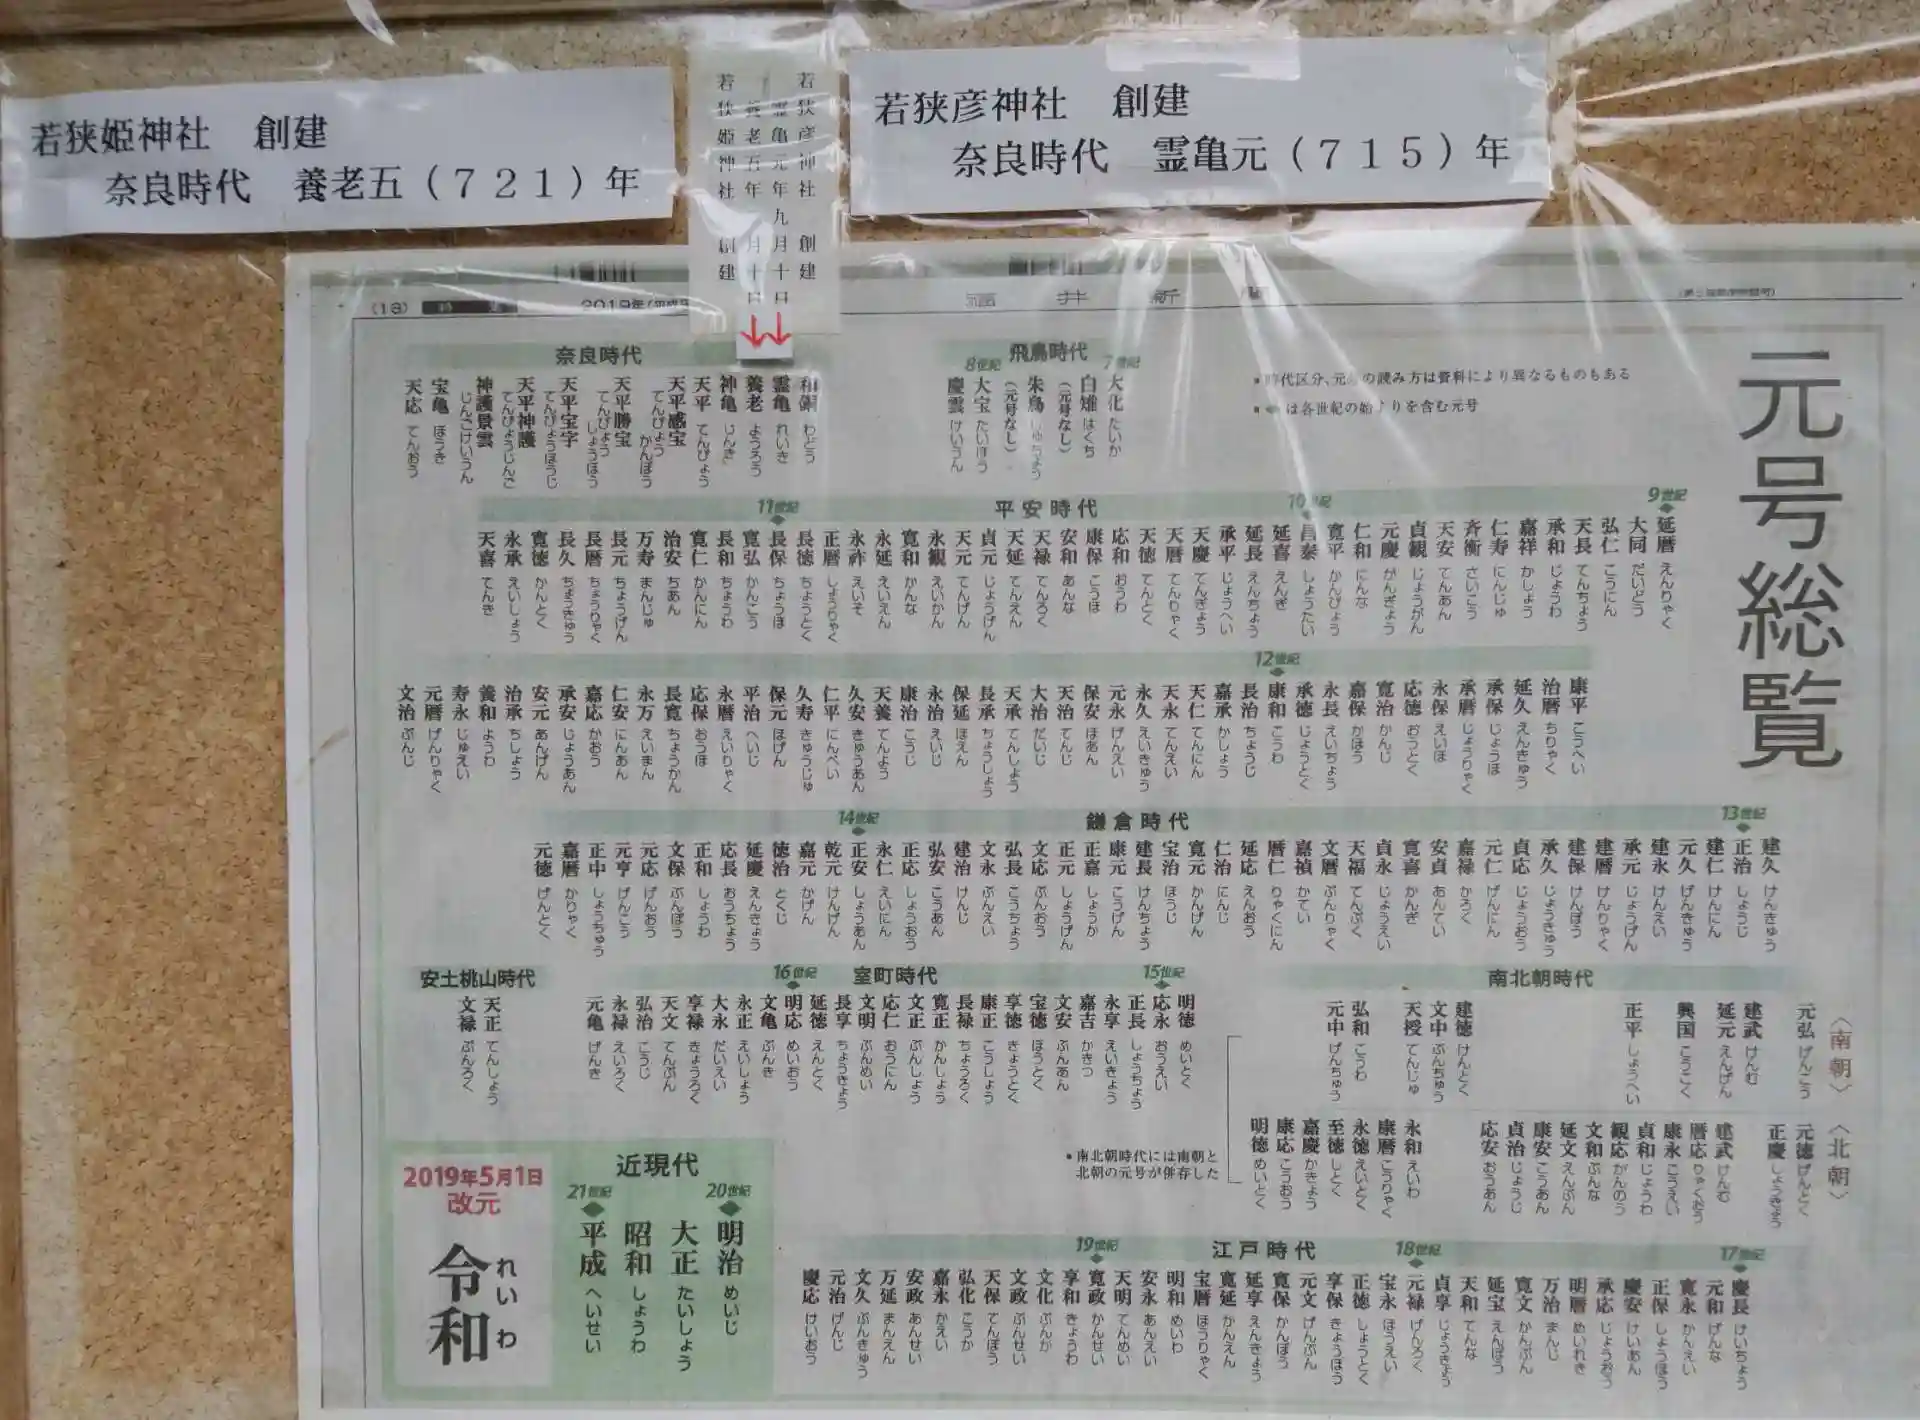 若狭姫神社 創建
奈良時代 養老五(721)年
若狭彦神社 創建
霊亀元年九月十日
養老五年 月十日
若狭姫神社 創建
若狭彦神社 創建
奈良時代 霊亀元(715)年
(18)
2019年
福井新聞
元号総覧
・時代区分、元号の読み方は資料により異なるものもある
・◆は各世紀の始まりを含む元号
飛鳥時代
7世紀
8世紀
大化 たいか
白雉 はくち
(元号なし)
朱鳥 しゅちょう
(元号なし)
大宝 たいほう
慶雲 けいうん
奈良時代
和銅 わどう
霊亀 れいき
養老 ようろう
神亀 じんき
天平 てんぴょう
天平感宝 てんぴょうかんぽう
天平勝宝 てんぴょうしょうほう
天平宝字 てんぴょうほうじ
天平神護 てんぴょうじんご
神護景雲 じんごけいうん
宝亀 ほうき
天応 てんおう
平安時代
9世紀
10世紀
11世紀
延暦 えんりゃく
大同 だいどう
弘仁 こうにん
天長 てんちょう
承和 じょうわ
嘉祥 かしょう
仁寿 にんじゅ
斉衡 さいこう
天安 てんあん
貞観 じょうがん
元慶 がんぎょう
仁和 にんな
寛平 かんぴょう
昌泰 しょうたい
延喜 えんぎ
延長 えんちょう
承平 じょうへい
天慶 てんぎょう
天暦 てんりゃく
天徳 てんとく
応和 おうわ
康保 こうほ
安和 あんな
天禄 てんろく
天延 てんえん
貞元 じょうげん
天元 てんげん
永観 えいかん
寛和 かんな
永延 えいえん
永祚 えいそ
正暦 しょうりゃく
長徳 ちょうとく
長保 ちょうほ
寛弘 かんこう
長和 ちょうわ
寛仁 かんにん
治安 ちあん
万寿 まんじゅ
長元 ちょうげん
長暦 ちょうりゃく
長久 ちょうきゅう
寛徳 かんとく
永承 えいしょう
天喜 てんき
12世紀
康平 こうへい
治暦 ちりゃく
延久 えんきゅう
承保 じょうほ
承暦 じょうりゃく
永保 えいほ
応徳 おうとく
寛治 かんじ
嘉保 かほう
永長 えいちょう
承徳 じょうとく
康和 こうわ
長治 ちょうじ
嘉承 かしょう
天仁 てんにん
天永 てんえい
永久 えいきゅう
元永 げんえい
保安 ほあん
天治 てんじ
大治 だいじ
天承 てんしょう
長承 ちょうしょう
保延 ほえん
永治 えいじ
康治 こうじ
天養 てんよう
久安 きゅうあん
仁平 にんぺい
久寿 きゅうじゅ
保元 ほげん
平治 へいじ
永暦 えいりゃく
応保 おうほ
長寛 ちょうかん
永万 えいまん
仁安 にんあん
嘉応 かおう
承安 じょうあん
安元 あんげん
治承 ちしょう
養和 ようわ
寿永 じゅえい
元暦 げんりゃく
文治 ぶんじ
鎌倉時代
13世紀
14世紀
建久 けんきゅう
正治 しょうじ
建仁 けんにん
元久 げんきゅう
建永 けんえい
承元 じょうげん
建暦 けんりゃく
建保 けんぽう
承久 じょうきゅう
貞応 じょうおう
元仁 げんにん
嘉禄 かろく
安貞 あんてい
寛喜 かんぎ
貞永 じょうえい
天福 てんぷく
文暦 ぶんりゃく
嘉禎 かてい
暦仁 りゃくにん
延応 えんおう
仁治 にんじ
寛元 かんげん
宝治 ほうじ
建長 けんちょう
康元 こうげん
正嘉 しょうか
正元 しょうげん
文応 ぶんおう
弘長 こうちょう
文永 ぶんえい
建治 けんじ
弘安 こうあん
正応 しょうおう
永仁 えいにん
正安 しょうあん
乾元 けんげん
嘉元 かげん
徳治 とくじ
延慶 えんきょう
応長 おうちょう
正和 しょうわ
文保 ぶんぽう
元応 げんおう
元亨 げんこう
正中 しょうちゅう
嘉暦 かりゃく
元徳 げんとく
南北朝時代
〈南朝〉
元弘 げんこう
建武 けんむ
延元 えんげん
興国 こうこく
正平 しょうへい
建徳 けんとく
文中 ぶんちゅう
天授 てんじゅ
弘和 こうわ
元中 げんちゅう
〈北朝〉
元徳 げんとく
正慶 しょうきょう
建武 けんむ
暦応 りゃくおう
康永 こうえい
貞和 じょうわ
観応 かんのう
文和 ぶんな
延文 えんぶん
康安 こうあん
貞治 じょうじ
応安 おうあん
永和 えいわ
康暦 こうりゃく
永徳 えいとく
至徳 しとく
嘉慶 かきょう
康応 こうおう
明徳 めいとく
・南北朝時代には南朝と
北朝の元号が併存した
室町時代
15世紀
16世紀
明徳 めいとく
応永 おうえい
正長 しょうちょう
永享 えいきょう
嘉吉 かきつ
文安 ぶんあん
宝徳 ほうとく
享徳 きょうとく
康正 こうしょう
長禄 ちょうろく
寛正 かんしょう
文正 ぶんしょう
応仁 おうにん
文明 ぶんめい
長享 ちょうきょう
延徳 えんとく
明応 めいおう
文亀 ぶんき
永正 えいしょう
大永 だいえい
享禄 きょうろく
天文 てんぶん
弘治 こうじ
永禄 えいろく
元亀 げんき
安土桃山時代
天正 てんしょう
文禄 ぶんろく
江戸時代
17世紀
18世紀
19世紀
慶長 けいちょう
元和 げんな
寛永 かんえい
正保 しょうほう
慶安 けいあん
承応 じょうおう
明暦 めいれき
万治 まんじ
寛文 かんぶん
延宝 えんぽう
天和 てんな
貞享 じょうきょう
元禄 げんろく
宝永 ほうえい
正徳 しょうとく
享保 きょうほう
元文 げんぶん
寛保 かんぽう
延享 えんきょう
寛延 かんえん
宝暦 ほうりゃく
明和 めいわ
安永 あんえい
天明 てんめい
寛政 かんせい
享和 きょうわ
文化 ぶんか
文政 ぶんせい
天保 てんぽう
弘化 こうか
嘉永 かえい
安政 あんせい
万延 まんえん
文久 ぶんきゅう
元治 げんじ
慶応 けいおう
近現代
20世紀
21世紀
明治 めいじ
大正 たいしょう
昭和 しょうわ
平成 へいせい
2019年5月1日
改元
令和 れいわ